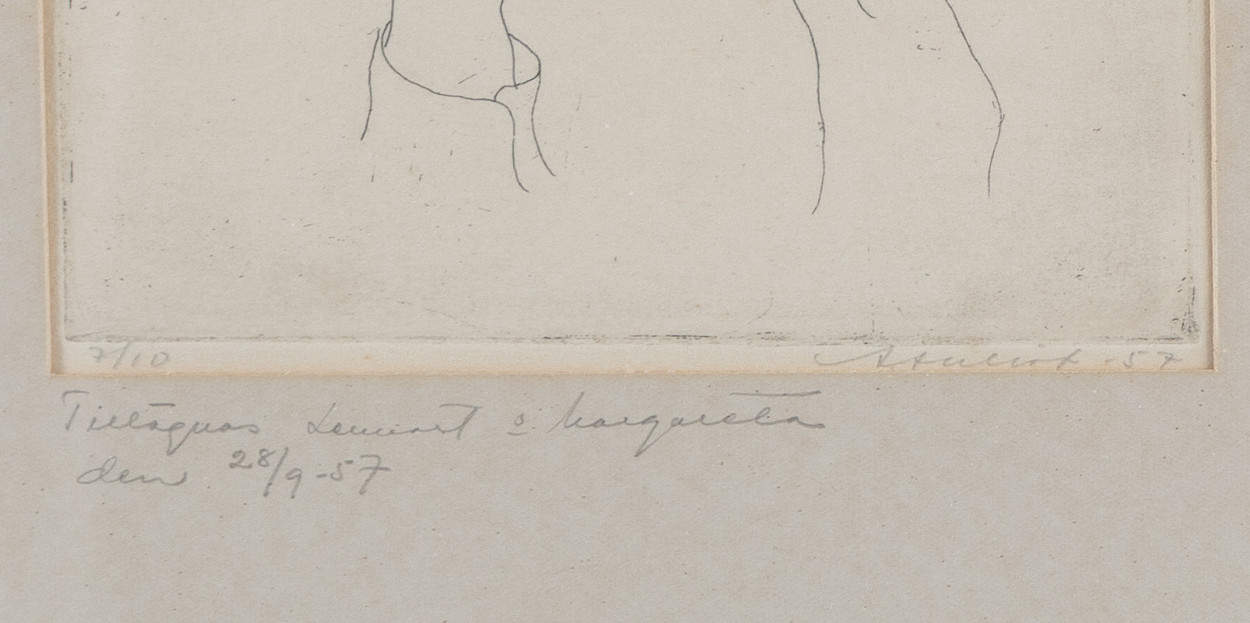 7/10
-57
Tillägnas Lennart o Margareta
den 28/9-57